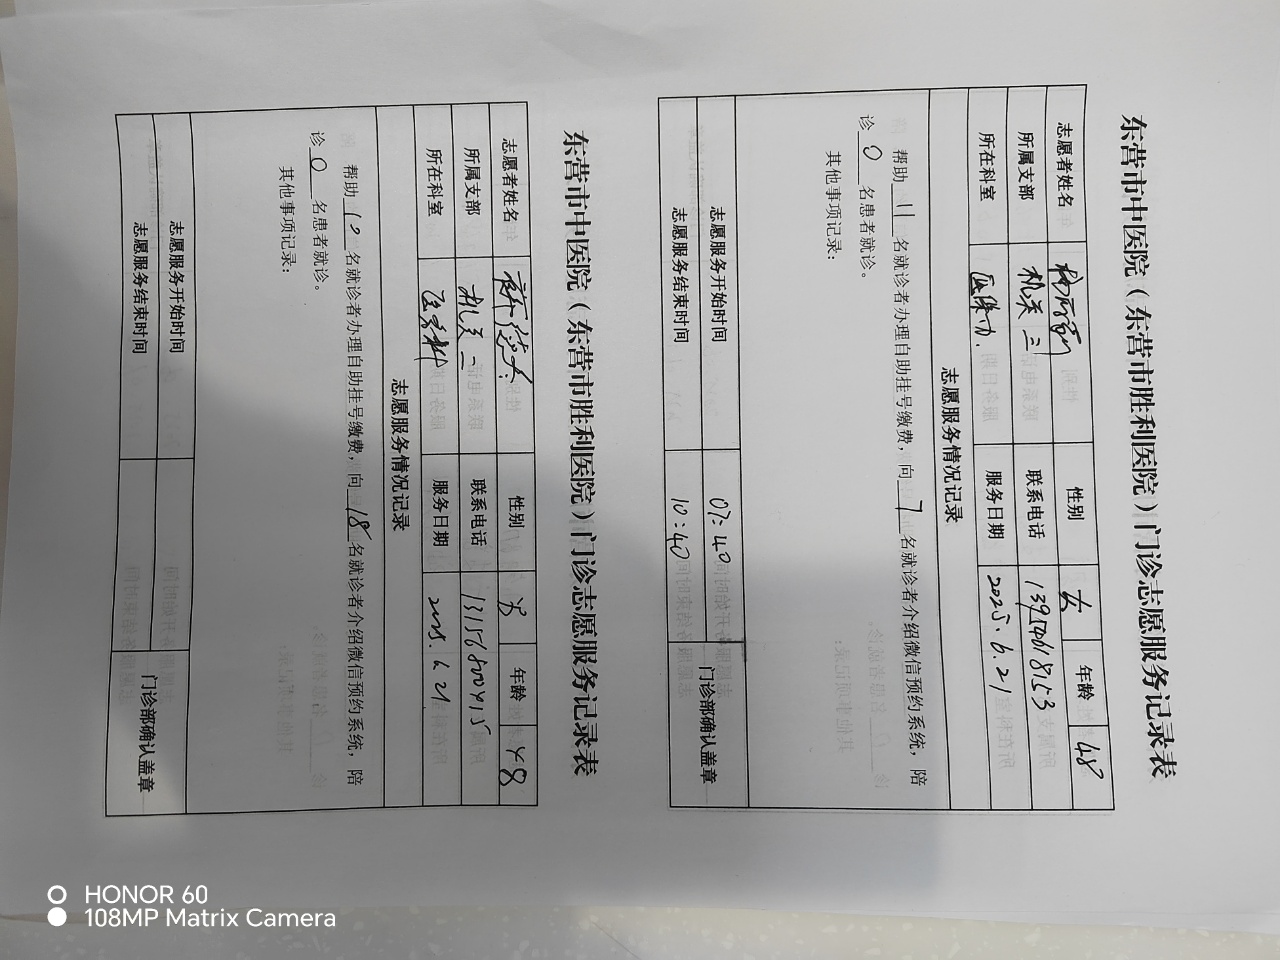 东营市中医院（东营市胜利医院）门诊志愿服务记录表
志愿者姓名 性别 女 年龄 48
所属支部 机关三 联系电话 13954618153
所在科室 医保办. 服务日期 2025.6.21
志愿服务情况记录
帮助 11 名就诊者办理自助挂号缴费，向 7 名就诊者介绍微信预约系统，陪
诊 0 名患者就诊。
其他事项记录：
志愿服务开始时间 07:40 门诊部确认盖章
志愿服务结束时间 10:40
东营市中医院（东营市胜利医院）门诊志愿服务记录表
志愿者姓名 性别 男 年龄 48
所属支部 机关二 联系电话
所在科室 服务日期 2025.6.21
志愿服务情况记录
帮助 12 名就诊者办理自助挂号缴费，向 18 名就诊者介绍微信预约系统，陪
诊 0 名患者就诊。
其他事项记录：
志愿服务开始时间 门诊部确认盖章
志愿服务结束时间
HONOR 60
108MP Matrix Camera